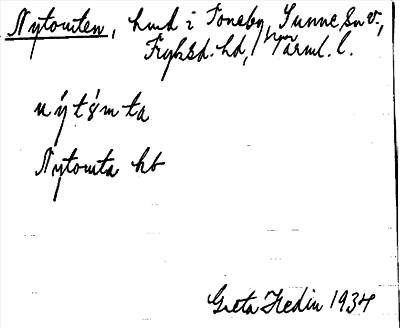 Nytomten, hmd i Toneby, Sunne sn v.,
Fryksd. hd, Värml. l.
nýtʒ́mta
Nytomta hb
Greta Hedin 1934